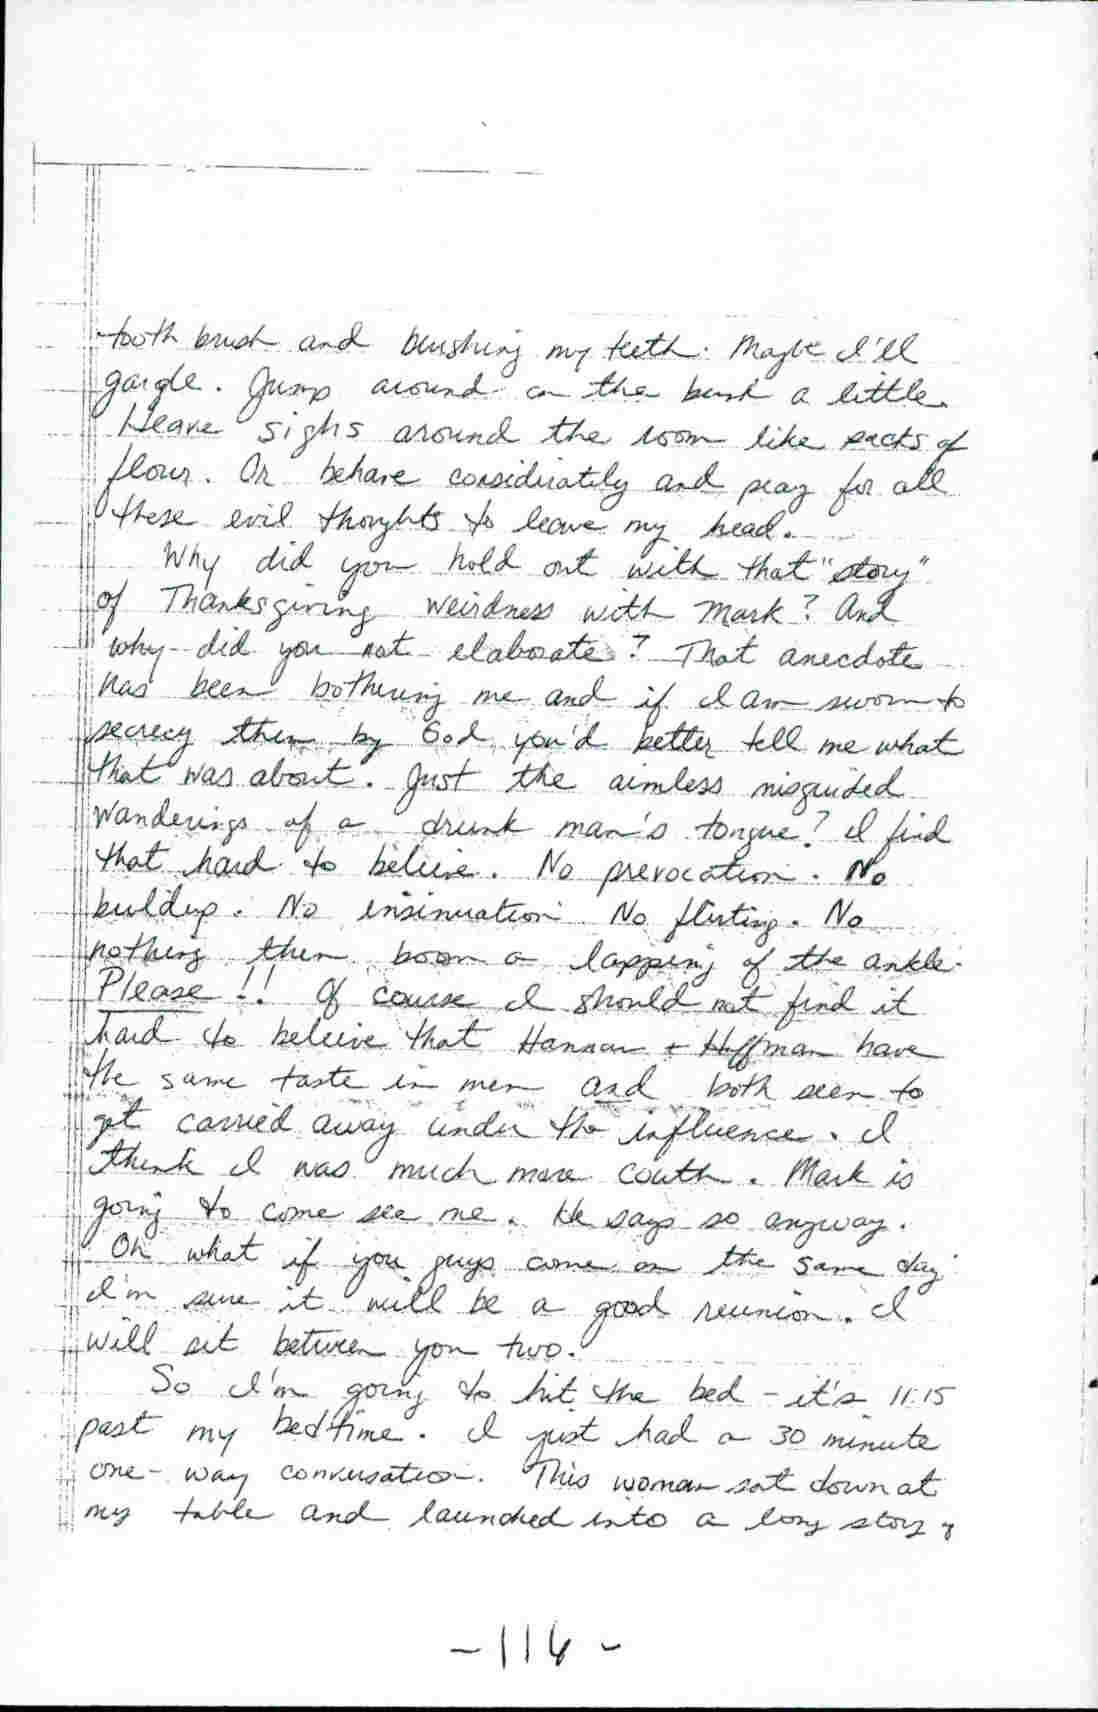 tooth brush and brushing my teeth. Maybe I'll
gargle. Jump around on the bunk a little.
Heave sighs around the room like sacks of
flour. Or behave considirately and pray for all
these evil thoughts to leave my head.
Why did you hold out with that "story"
of Thanksgiving weirdness with Mark? And
why did you not elaborate? That anecdote
has been bothering me and if I am sworn to
secrecy then by God you'd better tell me what
that was about. Just the aimless misguided
wanderings of a drunk man's tongue? I find
that hard to beleive. No prevocation. No
buildup. No insinuation. No flirting. No
nothing then boom a lapping of the ankle.
Please!! Of course I should not find it
hard to beleive that Hannan + Hoffman have
the same taste in men and both seem to
get carried away under the influence. I
think I was much more couth. Mark is
going to come see me. He says so anyway.
Oh what if you guys come on the same day
I'm sure it will be a good reunion. I
will sit between you two.
So I'm going to hit the bed - it's 11:15
past my bedtime. I just had a 30 minute
one-way conversation. This woman sat down at
my table and launched into a long story
-116-